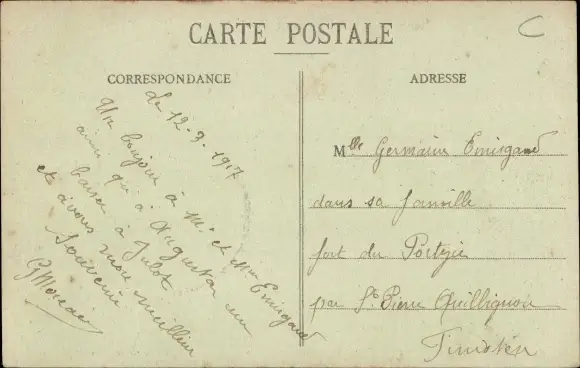 CARTE POSTALE
CORRESPONDANCE
Le 12-3-1917
Un bonjour à Mr et Mme Emisgand
ainsi qu'à Augustan un
baiser à Julot
et à vous mon meilleur
Souvenir
G Moreau
ADRESSE
Mlle Germaine Emisgand
dans sa famille
fort du Portzic
par St Pierre Quillignon
Finistère